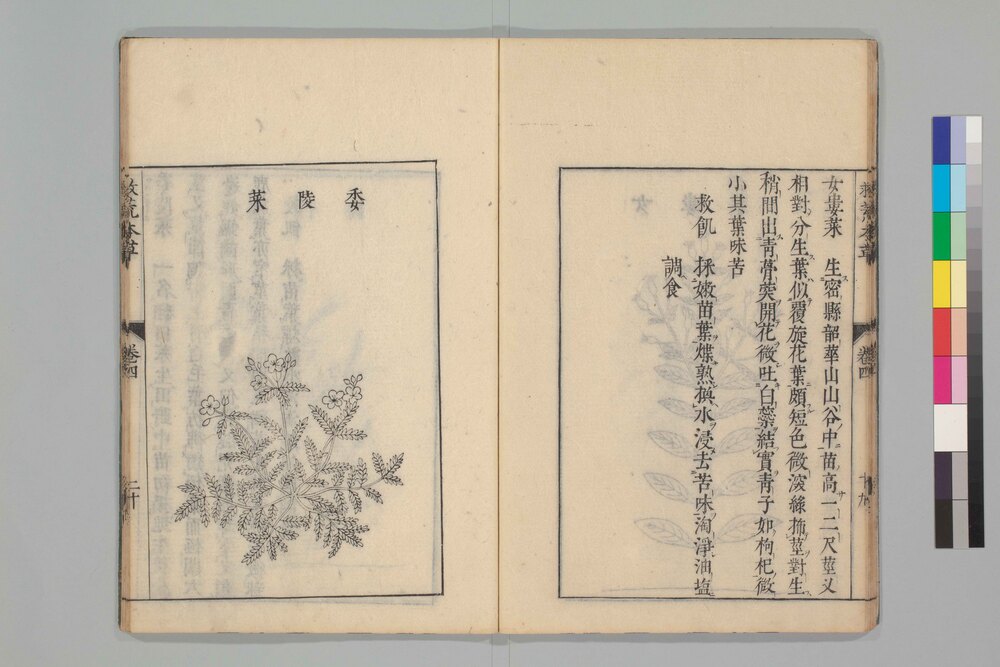 救荒本草
卷四
十九
女婁菜 生密縣韶華山山谷中苗高一二尺莖义
相對分生葉似覆旋花葉頗短色微深綠抪莖對生
稍間出青蓇葖開花微吐白蘂結實青子如枸杞微
小其葉味苦
救飢 採嫩苗葉煠熟換水浸去苦味淘淨油塩
調食
委陵菜
救荒本草
卷四
二十